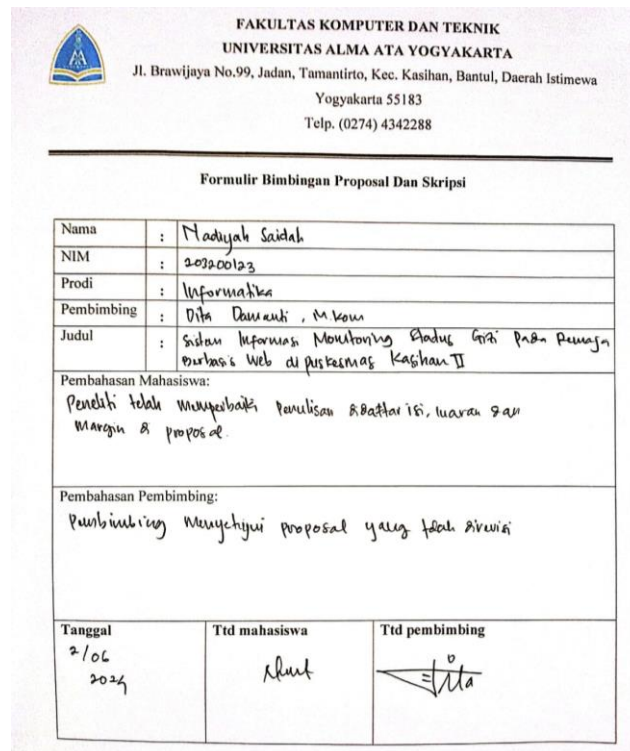 FAKULTAS KOMPUTER DAN TEKNIK
UNIVERSITAS ALMA ATA YOGYAKARTA
Jl. Brawijaya No.99, Jadan, Tamantirto, Kec. Kasihan, Bantul, Daerah Istimewa
Yogyakarta 55183
Telp. (0274) 4342288
Formulir Bimbingan Proposal Dan Skripsi
Nama : Nadiyah Saidah
NIM : 203200123
Prodi : Informatika
Pembimbing : Dita Damanti, M.Kom
Judul : Sistem Informasi Monitoring Status Gizi Pada Remaja
Berbasis Web di puskesmas Kasihan II
Pembahasan Mahasiswa:
Peneliti telah memperbaiki penulisan daftar isi, luaran dan
Margin proposal.
Pembahasan Pembimbing:
Pembimbing menyetujui proposal yang telah direvisi
Tanggal Ttd mahasiswa Ttd pembimbing
2/06
2024